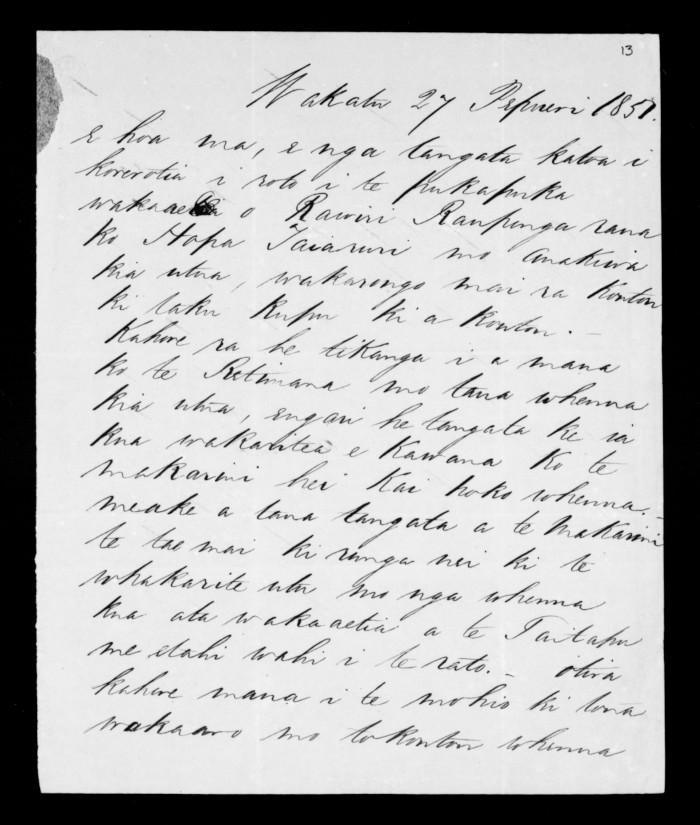 13
Wakatu 27 Pepueri 1857.
E hoa ma, e nga tangata katoa i
korerotia i roto i te pukapuka
wakaaetia o Rawiri Raupunga raua
ko Hopa Taiaruri mo Anakiwa
kia utua, wakarongo mai ra Koutou
ki taku kupu ki a koutou. —
Kahore ra he tikanga i a mana
ko te Retimana mo tana whenua
kia utua, engari he tangata ke ia
kua wakaritea e Kawana Ko te
makarini hei Kai hoko whenua. —
meake a tana tangata a te Makarini
te tae mai ki runga nei ki te
whakarite utu mo nga whenua
kua ata wakaaetia a te Taitapu
me etahi wahi i te rato. — otira
kahore mana i te mohio ki tona
wakaaro mo to koutou whenua